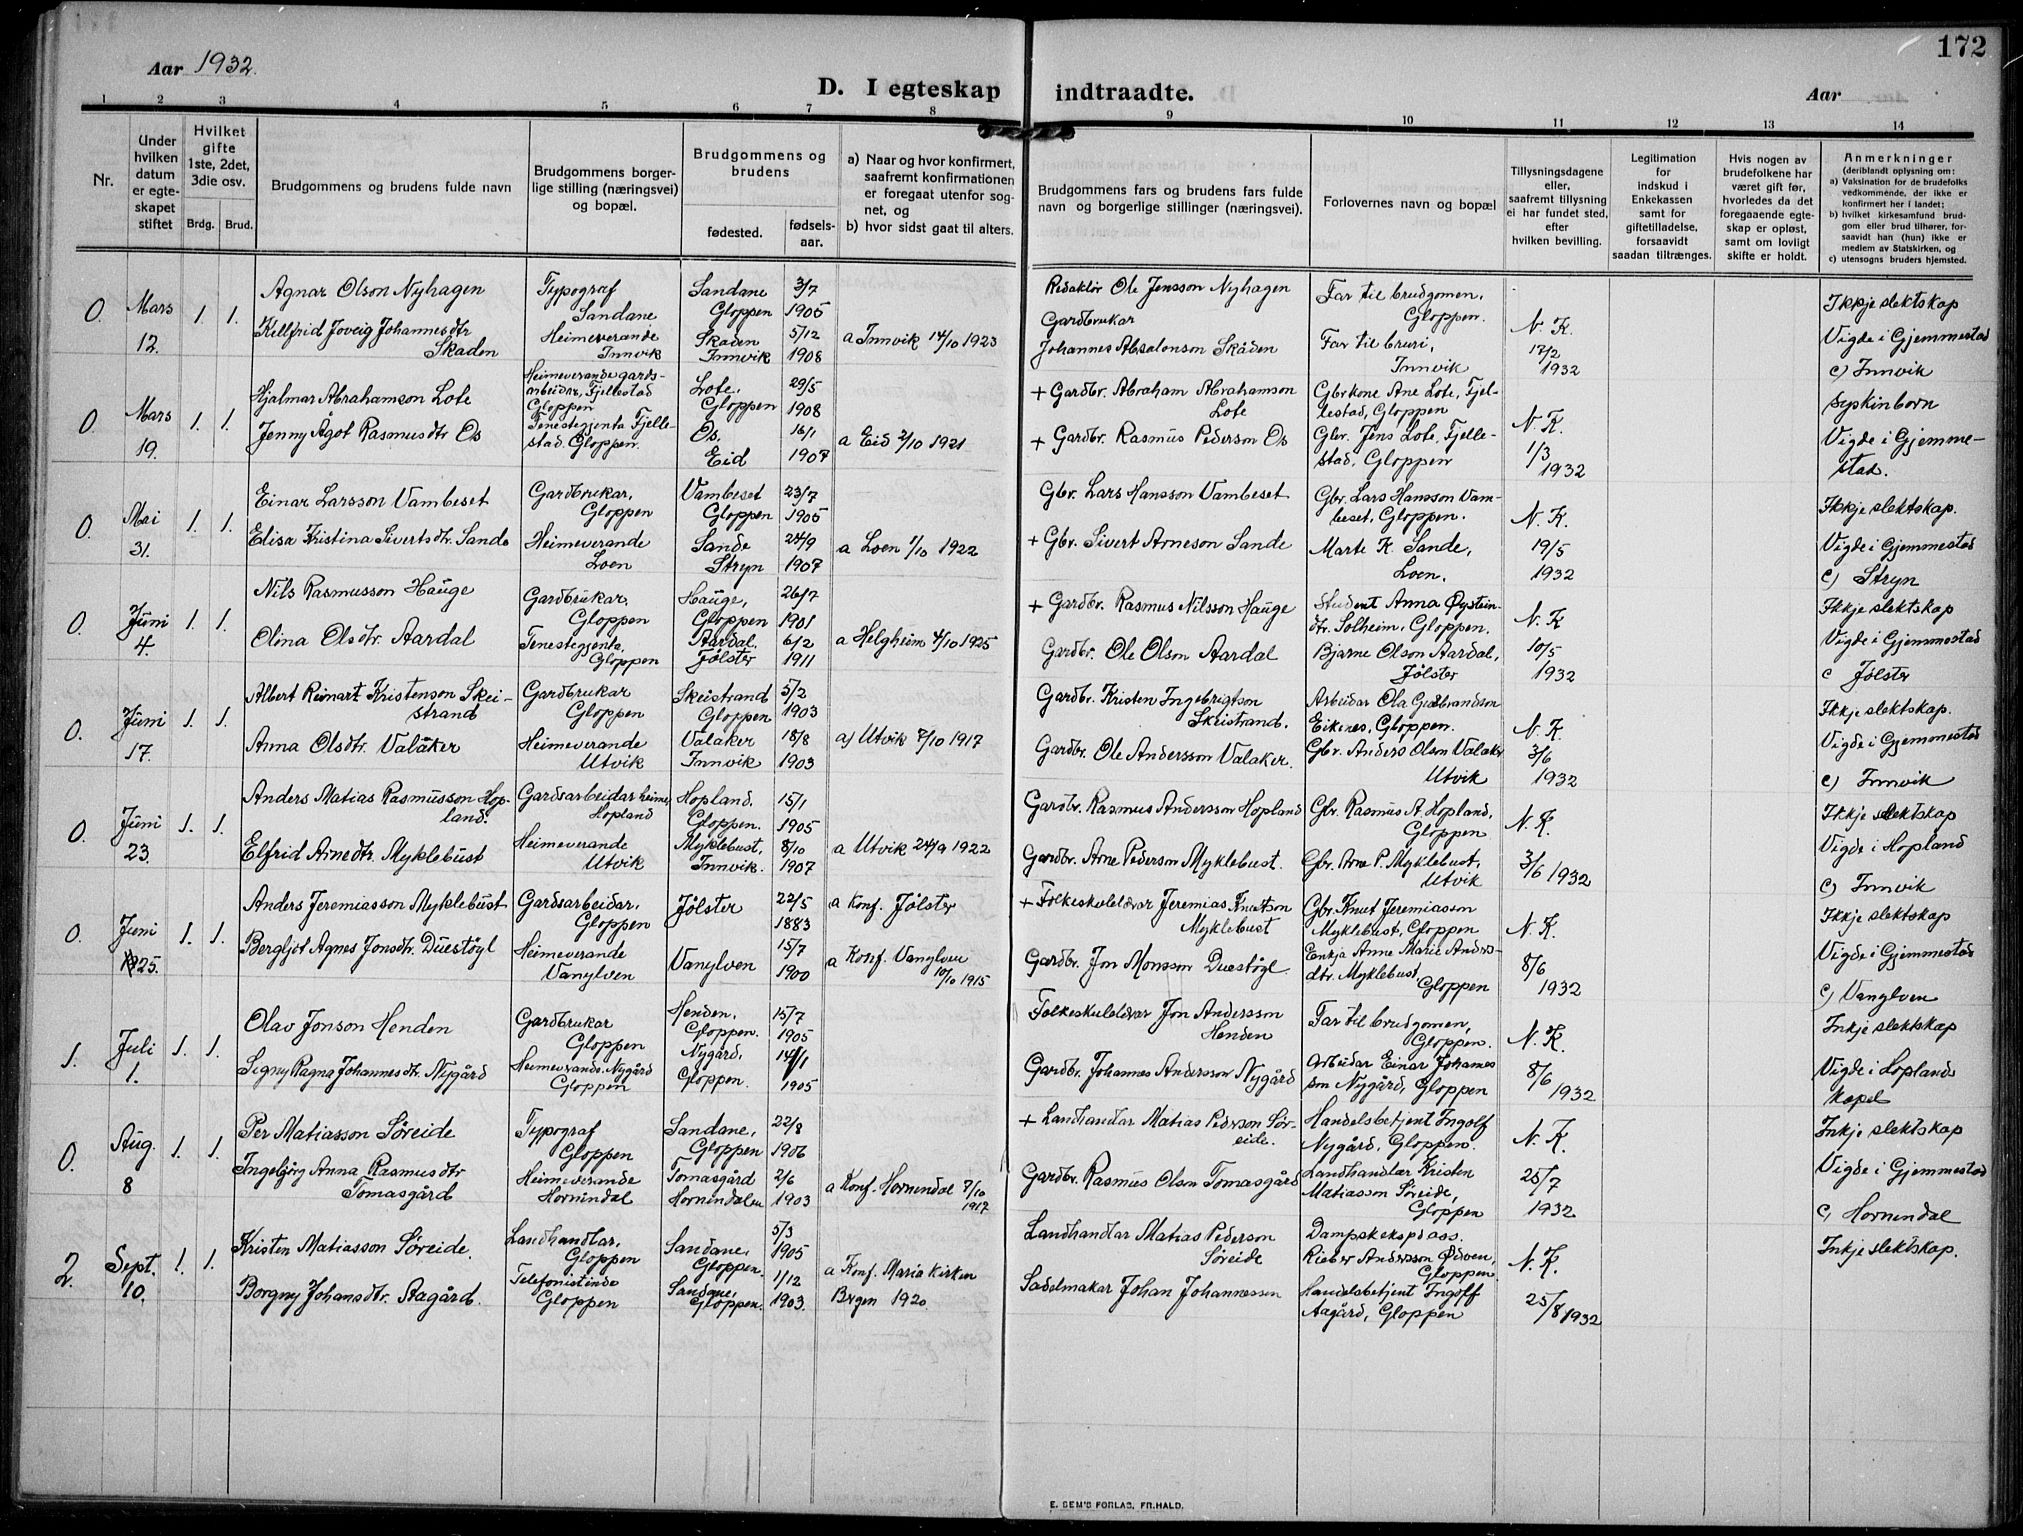 172
Aar 1932.
D. I egteskap indtraadte.
Aar
1 2 3 4 5 6 7 8 9 10 11 12 13 14
Nr.
Under hvilken datum er egteskapet stiftet
Hvilket gifte 1ste, 2det, 3die osv.
Brdg. Brud.
Brudgommens og brudens fulde navn
Brudgommens borgerlige stilling (næringsvei) og bopæl.
Brudgommens og brudens
fødested. fødselsaar.
a) Naar og hvor konfirmert, saafremt konfirmationen er foregaat utenfor sognet, og
b) hvor sidst gaat til alters.
Brudgommens fars og brudens fars fulde navn og borgerlige stillinger (næringsvei).
Forlovernes navn og bopæl
Tillysningsdagene eller, saafremt tillysning ei har fundet sted, efter hvilken bevilling.
Legitimation for indskud i Enkekassen samt for giftetilladelse, forsaavidt saadan tiltrænges.
Hvis nogen av brudefolkene har været gift før, hvorledes da det foregaaende egteskap er opløst, samt om lovligt skifte er holdt.
Anmerkninger
(deriblandt oplysning om:
a) Vaksination for de brudefolks vedkommende, der ikke er konfirmert her i landet;
b) hvilket kirkesamfund brudgom eller brud tilhører, forsaavidt han (hun) ikke er medlem av Statskirken, og
c) utensogns bruders hjemsted.
0 Mars 12. 1. 1.
Agnar Olson Nyhagen
Typograf Sandane
Sandane Gloppen 3/7 1905
Redaktør Ole Jensson Nyhagen
Far til brudgomen, Gloppen.
Killfrid Joveig Johannesdtr Skaden
Heimeverande Innvik
Skaden Innvik 5/12 1908
a Innvik 14/10 1923
Gardbrukar Johannes Absalonson Skåden
Far til bruri, Innvik
N. K. 17/2 1932
Ikkje slektskap
Vigde i Gjemmestad
c) Innvik
0 Mars 19. 1. 1.
Hjalmar Abrahamson Lote
Heimeverande gardsarbeidar, Fjellestad Gloppen
Lote, Gloppen 29/5 1908
+ Gardbr. Abraham Abrahamson Lote
Gbrkone Ane Lote, Fjellestad, Gloppen
Jenny Ågot Rasmusdtr Os
Tenestegjenta Fjellestad. Gloppen.
Os, Eid 16/1 1907
a Eid 2/10 1921
+ Gardbr. Rasmus Pederson Os
Gbr. Jens Lote, Fjellestad, Gloppen
N. K. 1/3 1932
Syskinborn
Vigde i Gjemmestad.
0. Mai 31. 1. 1.
Einar Larsson Vambeset
Gardbrukar, Gloppen
Vambeset Gloppen 23/7 1905
Gbr. Lars Hansson Vambeset
Gbr. Lars Hansson Vambeset, Gloppen.
Elisa Kristina Sivertsdtr. Sande
Heimeverande Loen
Sande Stryn 24/9 1907
a Loen 1/10 1922
+ Gbr. Sivert Arneson Sande
Marte K. Sande, Loen.
N. K. 19/5 1932
Ikkje slektskap.
Vigde i Gjemmestad
c) Stryn
0. Juni 4. 1. 1.
Nils Rasmusson Hauge
Gardbrukar, Gloppen
Hauge, Gloppen 26/7 1901
+ Gardbr. Rasmus Nilsson Hauge
Student Anna Øysteindtr. Solheim, Gloppen.
Olina Olsdtr. Aardal
Tenestegjenta, Gloppen
Aardal, Jølster 6/2 1911
a Helgheim 4/10 1925
Gardbr. Ole Olson Aardal
Bjarne Olson Aardal, Jølster
N. K 10/5 1932
Ikkje slektskap
Vigde i Gjemmestad
c Jølster
0. Juni 17. 1. 1.
Albert Reinart Kristenson Skeistrand
Gardbrukar Gloppen
Skeistrand Gloppen 5/2 1903
Gardbr. Kristen Ingebrigtson Skeistrand.
Arbeidar Ola Gudbrandson Eikenes, Gloppen.
Anna Olsdtr. Valaker
Heimeverande Utvik
Valaker Innvik 18/8 1903
a) Utvik 7/10 1917
Gardbr. Ole Andersson Valaker.
Gbr. Anders Olson Valaker Utvik
N. K. 3/6 1932
Ikkje slektskap.
Vigde i Gjemmestad
c) Innvik
0. Juni 23. 1. 1.
Anders Matias Rasmusson Hopland.
Gardsarbeidar heime, Hopland
Hopland, Gloppen. 15/1 1905
Gardbr. Rasmus Andersson Hopland
Gbr. Rasmus A. Hopland, Gloppen
Elfrid Arnedtr. Myklebust
Heimeverande Utvik
Myklebust, Innvik. 8/10 1907
a Utvik 24/9 1922
Gardbr. Arne Pederson Myklebust.
Gbr. Arne P. Myklebust, Utvik
N. K. 3/6 1932
Ikkje slektskap
Vigde i Hopland
c) Innvik
0. Juni 25. 1. 1.
Anders Jeremiasson Myklebust
Gardsarbeidar, Gloppen
Jølster 22/5 1883
a Konf. Jølster
+ Folkeskulelærar Jeremias Knutson Myklebust
Gbr. Knut Jeremiasson Myklebust, Gloppen
Bergljot Agnes Jonsdtr. Duestøyl
Heimeverande Vanylven
Vanylven 15/7 1900
a Konf. Vanylven 10/10 1915
Gardbr. Jon Monsson Duestøyl
Enkja Anne Marie Andersdtr. Myklebust, Gloppen
N. K. 8/6 1932
Ikkje slektskap
Vigde i Gjemmestad
c) Vanylven
1. Juli 1. 1. 1.
Olav Jonson Henden
Gardbrukar Gloppen
Henden, Gloppen. 15/7 1905
Folkeskulelærar Jon Andersson Henden
Far til brudgomen, Gloppen.
Signy Ragna Johannesdtr. Nygård
Heimeverande. Nygård Gloppen
Nygård, Gloppen. 14/1 1905
Gardbr. Johannes Andersson Nygård
Arbeidar Einar Johannesson Nygård, Gloppen
N. K. 8/6 1932
Inkje slektskap
Vigde i Loplands kapel
0. Aug. 8 1. 1.
Per Matiasson Søreide
Typograf Gloppen
Sandane, Gloppen 22/8 1906
+ Landhandlar Matias Pederson Søreide.
Handelsbetjent Ingolf Nygård, Gloppen.
Ingebjørg Anna Rasmusdtr Tomasgård
Heimeverande Hornindal
Tomasgård Hornindalen 2/6 1903
a Konf. Hornindal 7/10 1917
Gardbr. Rasmus Olson Tomasgård
Landhandlar Kristen Matiasson Søreide, Gloppen
N. K. 25/7 1932
Inkje slektskap
Vigde i Gjemmestad
c) Hornindal
2. Sept. 10. 1. 1.
Kristen Matiasson Søreide.
Landhandlar, Gloppen
Sandane, Gloppen. 5/3 1905
Landhandlar Matias Pederson Søreide
Dampskekspd. ass. Rieber Andersson Ødven, Gloppen.
Borgny Johansdtr. Aagård.
Telefonistinde Gloppen
Sandane, Gloppen. 1/12 1903.
a Konf. Mariakirken Bergen 1920
Sadelmakar Johan Johannessen
Handelsbetjent Ingolf Aagård, Gloppen
N. K. 25/8 1932
Inkje slektskap.
E. SEM'S FORLAG, FR.HALD.